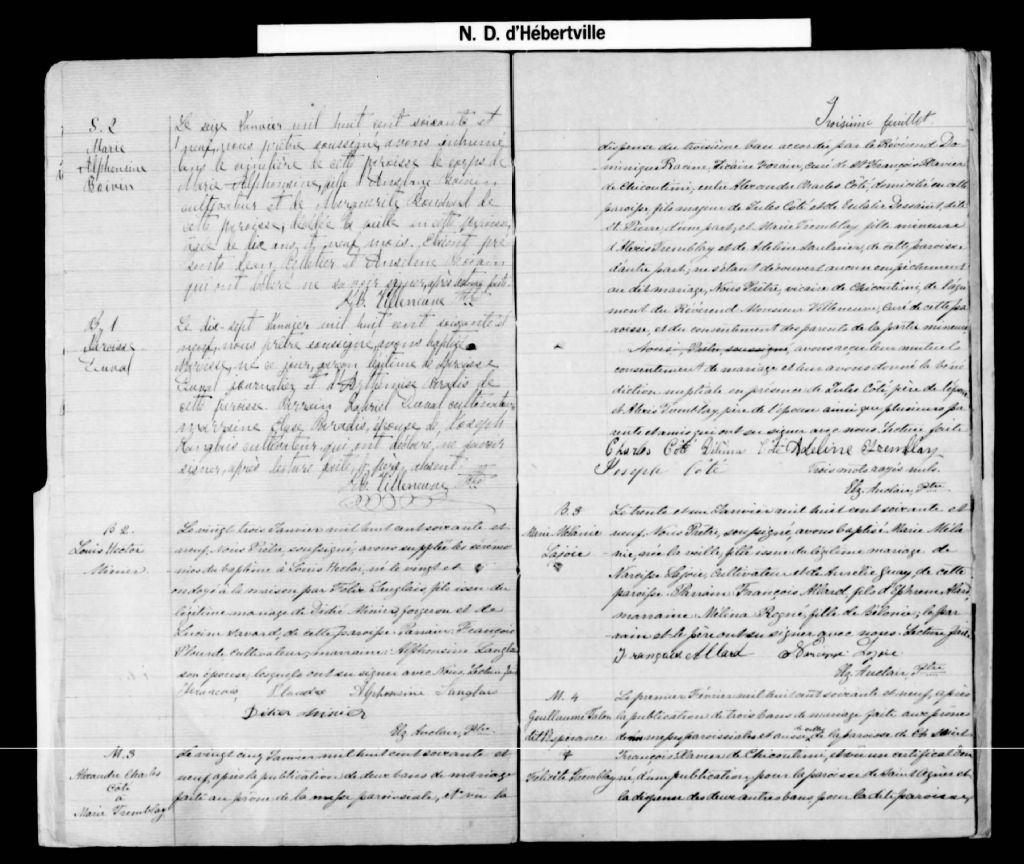 N. D. d'Hébertville
S. 2
Marie
Alphonsine
Boivin
Le seize Janvier mil huit cent soixante et
neuf, nous prêtre soussigné, avons inhumé
dans le cimetière de cette paroisse le corps de
Marie Alphonsine, fille d'Anselme Boivin
cultivateur et de Marguerite de
cette paroisse, décédée la veille en cette paroisse,
âgée de dix ans, et neuf mois. Etaient pré
sents Jean Pelletier et Anselme Boivin
qui ont déclaré ne savoir signer, après lecture faite.
Villeneuve Ptre
B. 1
Narcisse
Duval
Le dix-sept Janvier mil huit cent soixante et
neuf, nous prêtre soussigné, avons baptisé
Narcisse, né ce jour, garçon légitime de Narcisse
Duval journalier et d'Arthémise Paradis de
cette paroisse. Parrain Gabriel Duval cultivateur
marraine Elyse Paradis, épouse de Joseph
Langlais cultivateur, qui ont déclaré, ne savoir
signer, après lecture faite, le père absent
Villeneuve Ptre
B 2.
Louis Hector
Minier
Le vingt trois Janvier mil huit cent soixante et
neuf, Nous Prêtre, soussigné, avons supplée les cérémo
nies du baptême à Louis Hector, né le vingt et
ondoyé à la maison par Félix Langlais fils issu du
légitime mariage de Didier Minier, forgeron et de
Lucine Savard, de cette paroisse. Parrain, François
Plourde cultivateur, marraine Alphonsine Langlais
son épouse, lesquels ont su signer avec Nous. Lecture faite
François Plaudre Alphonsine Langlais
Didier Minier
Elz. Auclair, Ptre
M. 3
Alexandre Charles
Côté
à
Marie Tremblay
Le vingt cinq Janvier mil huit cent soixante et
neuf, après la publication de deux bans de mariage
faite au prône de la messe paroissiale, et vu la
Troisième feuillet
dispense du troisième banc accordée par le Révérend Do
minique Racine, Vicaire Forain, curé de St François Xavier
de Chicoutimi, entre Alexandre Charles Côté, domicilié en cette
paroisse, fils majeur de Jules Côté et de Eulalie Dessaint, dite
St Pierre, d'une part, et Marie Tremblay fille mineure
d'Alexis Tremblay et de Adeline Saulnier, de cette paroisse
d'autre part; ne s'étant découvert aucun empêchement
au dit mariage, Nous Prêtre, vicaire de Chicoutimi, de l'agré
ment du Révérend Monsieur Villeneuve, Curé de cette pa
roisse, et du consentement des parents de la partie mineure
Nous, Prêtre, soussigné, avons reçu leur mutuel
consentement de mariage et leur avons donné la béné
diction nuptiale en présence de Jules Côté, père de l'époux
et Alexis Tremblay, père de l'épouse ainsi que plusieurs pa
rents et amis qui ont su signer avec nous. Lecture faite
Charles Côté Côté Adeline Tremblay
Joseph Côté trois mots rayés nuls.
Elz. Auclair, Ptre
B. 3
Marie Mélanie
Lajoie
Le trente et un Janvier mil huit cent soixante et
neuf, Nous Prêtre, soussigné, avons baptisé Marie Méla
nie, née la veille, fille issue du légitime mariage de
Narcisse Lajoie, cultivateur et de Aurélie Guay, de cette
paroisse. Parrain François Allard, fils d'Ephrem Allard
marraine Mélina fille de Bélonie; le par
rain et le père ont su signer avec nous. Lecture faite
François Allard Narcisse Lajoie
Elz. Auclair, Ptre
M. 4
Guillaume Talon
dit l'Espérance
&
Félicité Tremblay
Le premier Février mil huit cent soixante et neuf, après
la publication de trois bans de mariage faite aux prônes
de nos messes paroissiales et aussi de celles de la paroisse de St
François Xavier de Chicoutimi, et vu un certificat d'u
ne d'une publication, pour la paroisse de Saint Agnès et
la dispense des deux autres bans pour la dite paroisse,